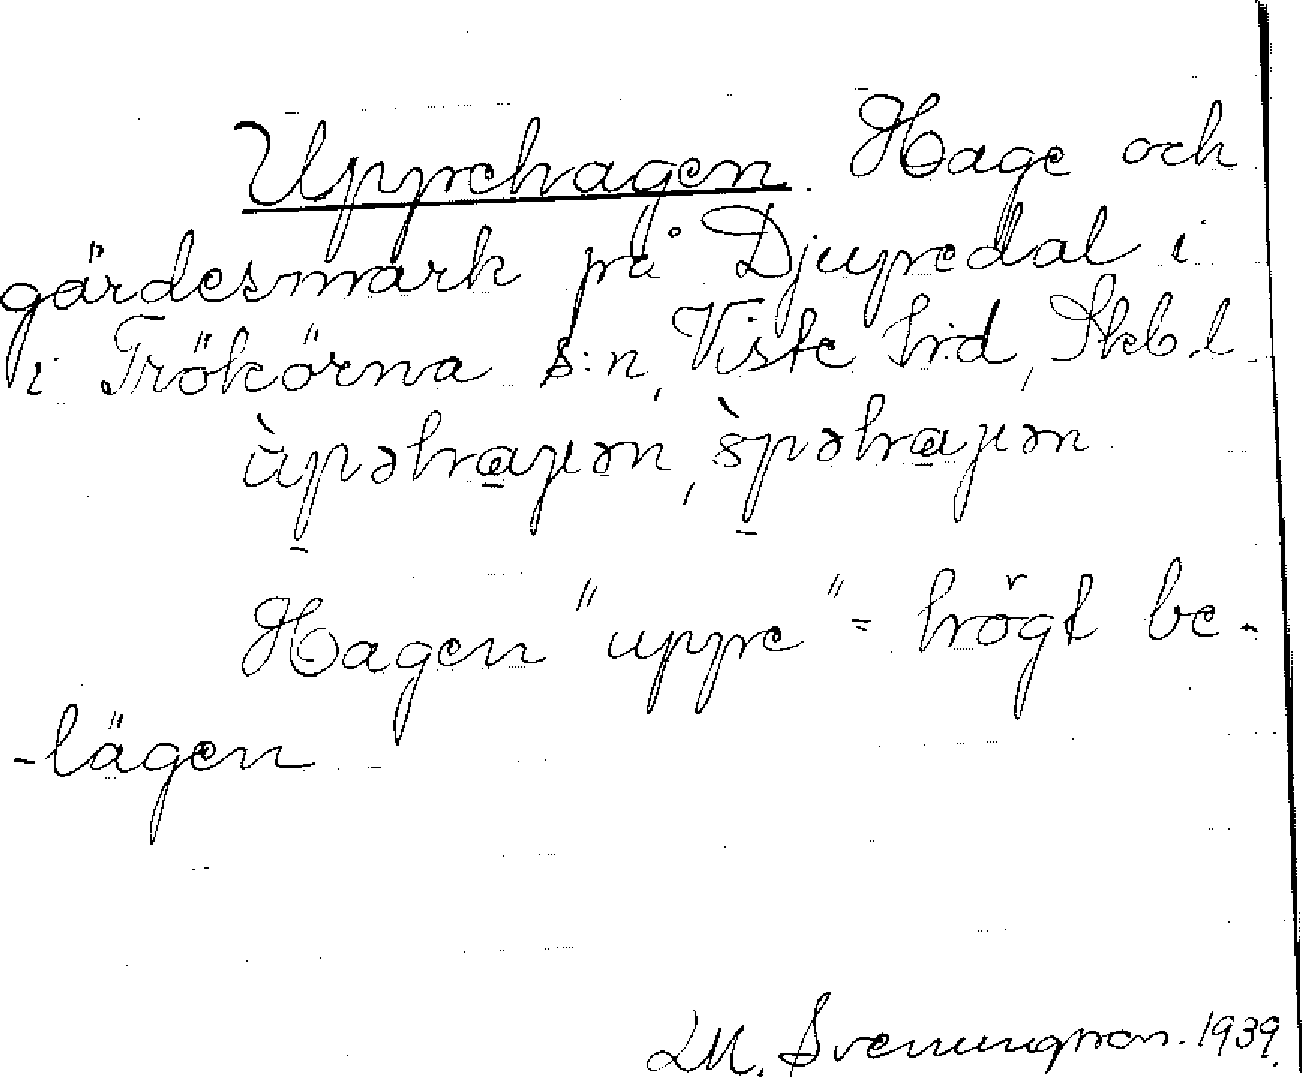 Uppehagen. Hage och
gärdesmark på Djupedal i
i Trökörna s:n, Viste hd, Skb.l
ùpəhaɡən, s̀pəhaɡən.
Hagen "uppe" = högt be-
-lägen
M. Svenungson. 1939.